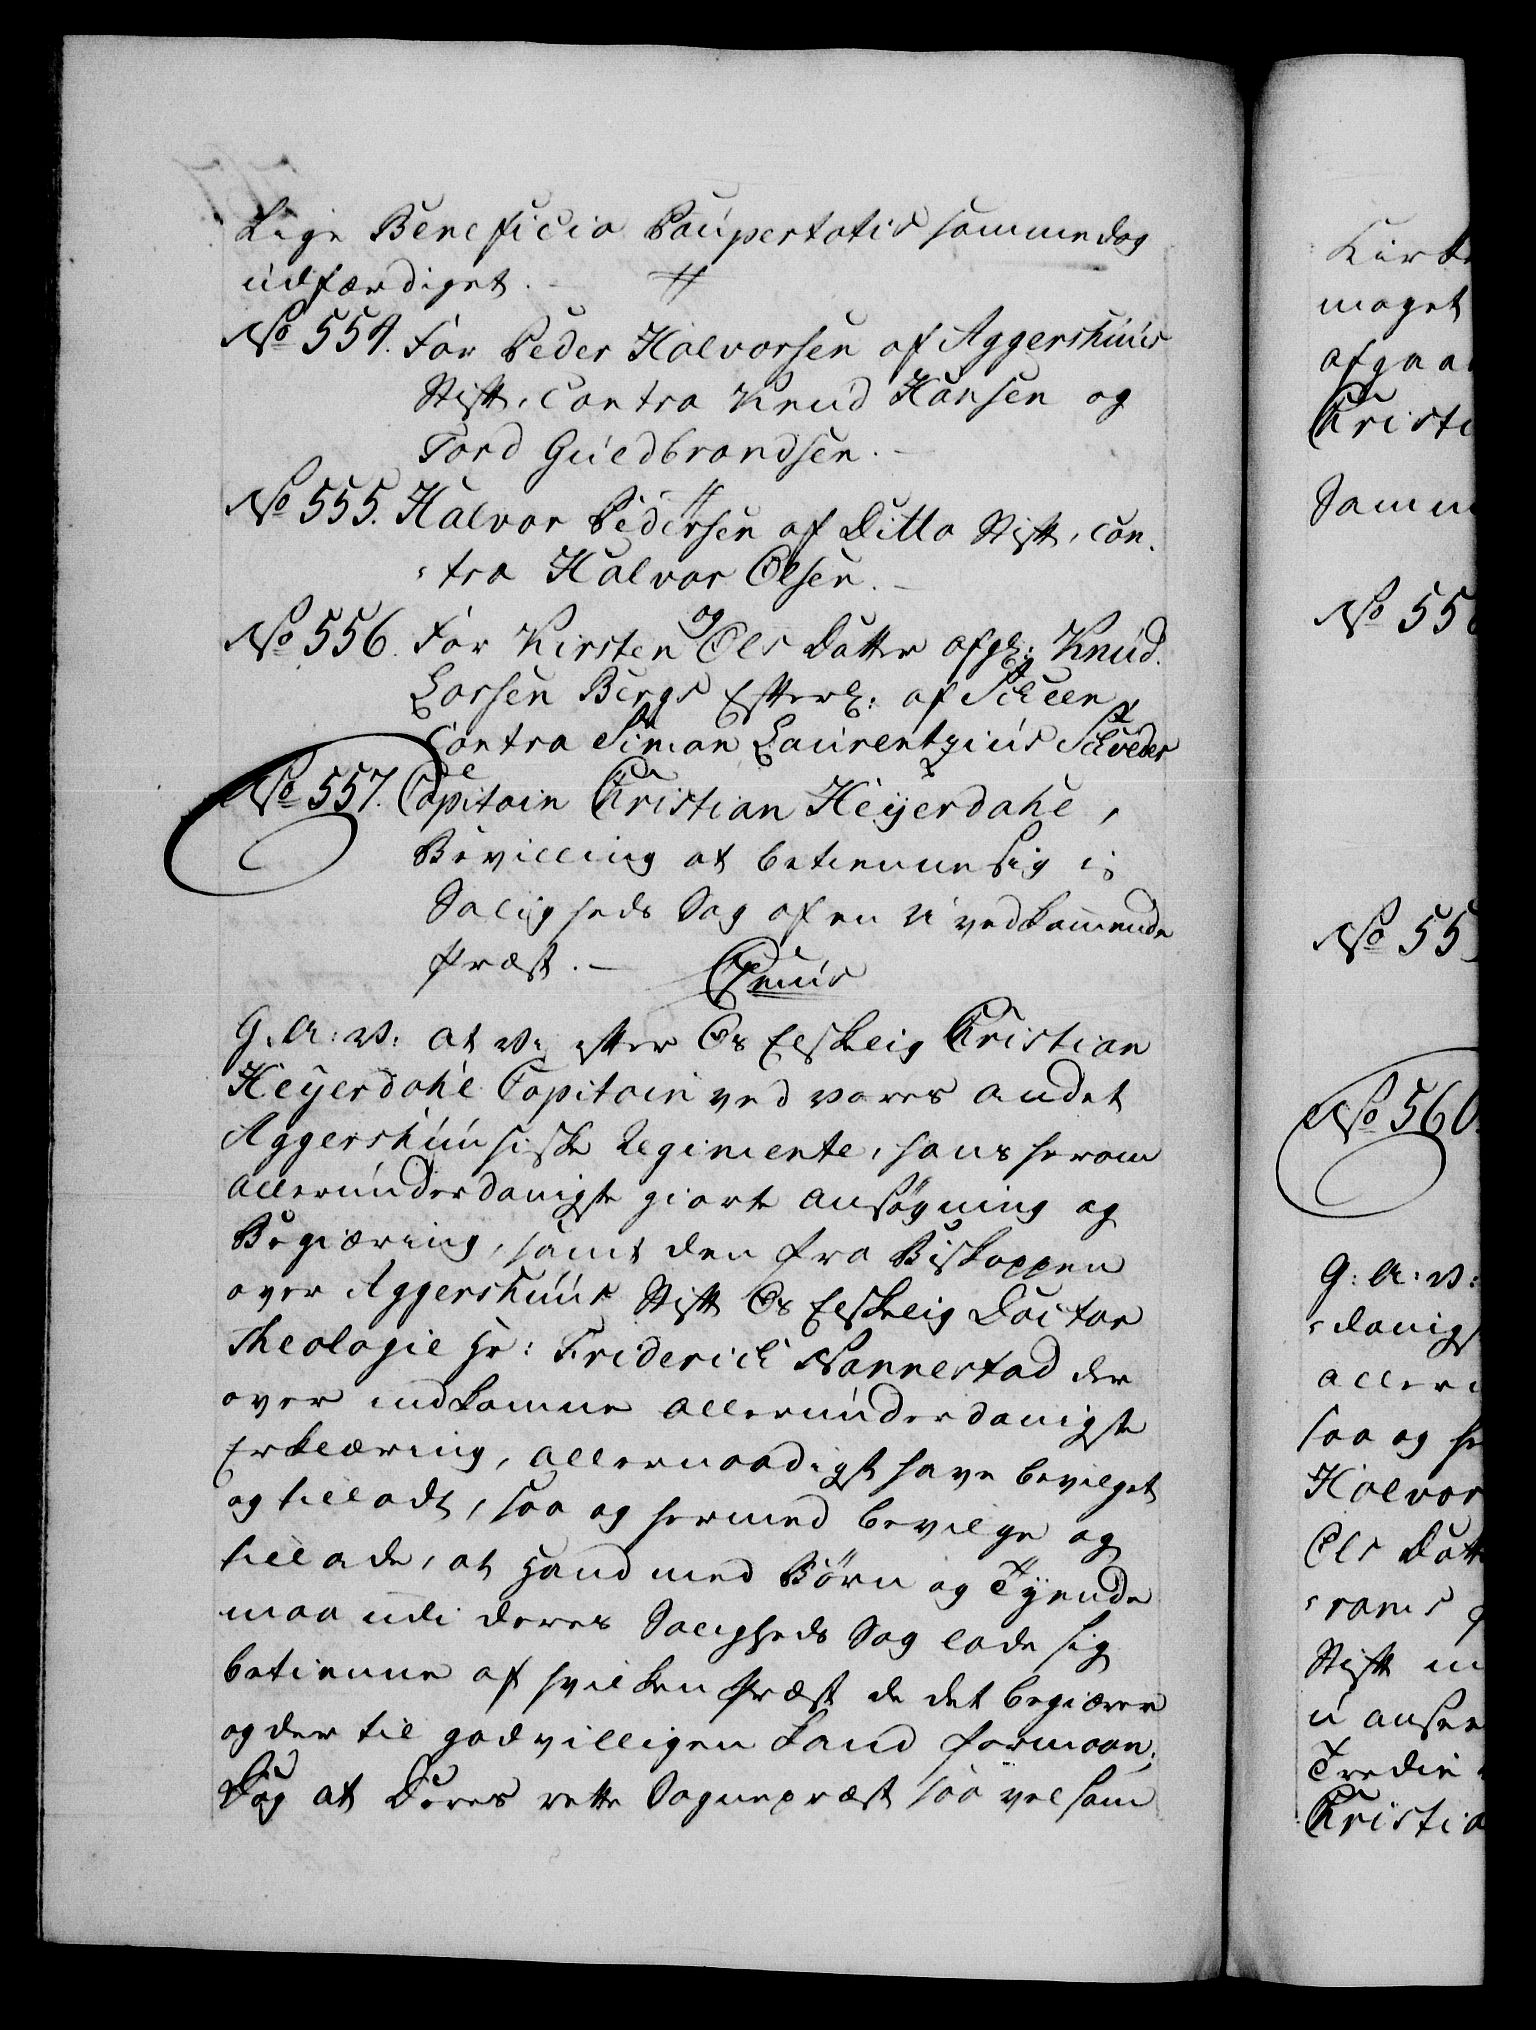 Lige Beneficia Paupertatis sammedag
udfærdiget. —
No 554. For Peder Halvorsen af Aggershuus
Stift, Contra Knud Hansen og
Tord Guldbrandsen. —
No 555. Halvor Pedersen af Ditto Stift, con-
-tra Halvor Olsen. —
No 556. For Kirsten Ols Datter og afgl: Knud
Larsen Bergs Efterl: af Scheen
Contra Simon Laurentzius
No 557. Capitain Christian Heyerdahl,
Bevilling at betienne sig i
Saligheds Sag af en uvedkommende
Præst. — Genuis
G. A: V: at Vi efter Os Elskelig Christian
Heyerdahl Capitain ved vores andet
Aggershuusiske Regimente, hans herom
allerunderdanigste giorte ansøgning og
Begiæring, samt den fra Biskoppen
over Aggershuus Stift Os Elskelig Doctor
Theologie Hr: Friderich Nannestad der
over indkomne allerunderdanigste
Erklæring, allernaadigst have bevilget
og tilladt, saa og hermed bevilge og
tillade, at Hand med Børn og Tyende
maa udi deres Saligheds Sag lade sig
betienne af hvilken Præst de det begiærer
og der til godvilligen kand formaae;
Dog at Deres rette Sognepræst saa vel som
Kirk
maget
afgaa
Christi
Samm
No 55
No 55
No 560.
G: A: V:
-danigs
aller
saa og he
Halvor
Ols Datt
Stift
Tredie
Christia